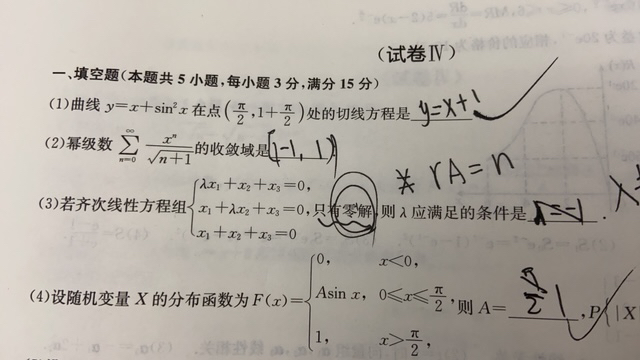 (试卷Ⅳ)
一、填空题(本题共5小题,每小题3分,满分15分)
(1)曲线 y=x+sin²x 在点(π/2,1+π/2)处的切线方程是 y=x+1
(2)幂级数 ∑_{n=0}^{∞} xⁿ/√(n+1) 的收敛域是 [-1,1)
* rA=n
(3)若齐次线性方程组 { λx₁+x₂+x₃=0, x₁+λx₂+x₃=0, x₁+x₂+x₃=0 只有零解,则 λ 应满足的条件是
(4)设随机变量 X 的分布函数为 F(x)= { 0, x<0, Asin x, 0≤x≤π/2, 1, x>π/2, 则 A= 1 ,P{|X|